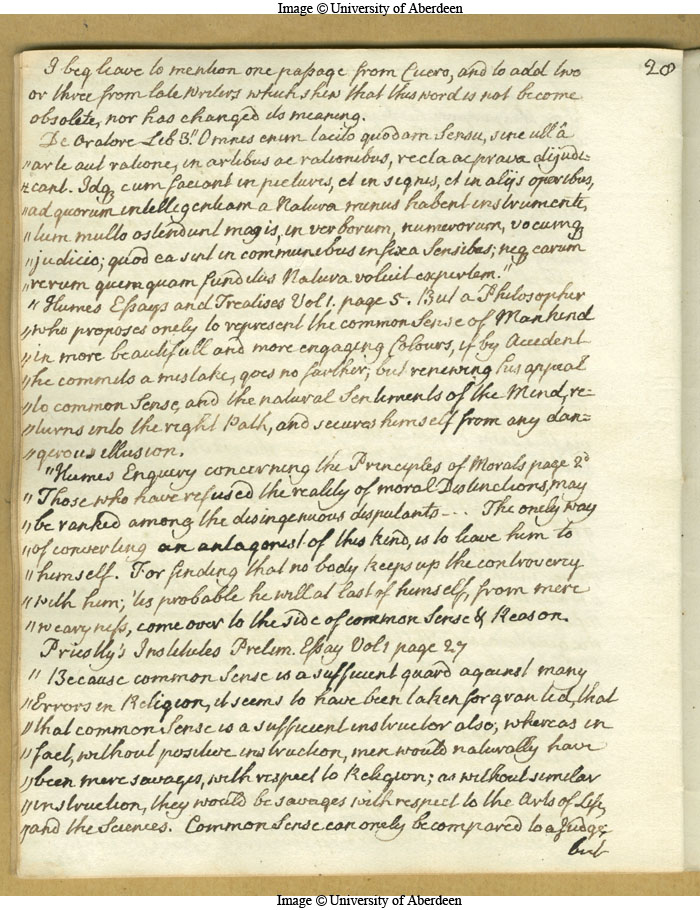 Image © University of Aberdeen
28
I beg leave to mention one passage from Cicero, and to add two
or three from late Writers which shew that this word is not become
obsolete, nor has changed its meaning.
De Oratore Lib 3. "Omnes enim tacito quodam Sensu, sine ullâ
"arte aut ratione, in artibus ac rationibus, recta ac prava dijudi=
"cant. Idq, cum faciant in picturis, et in signis, et in alijs operibus,
"ad quorum intelligentiam a Natura minus habent instrumenti,
"tum multo ostendunt magis, in verborum, numerorum, vocumq
"judicio; quod ea sint in communibus infixa Sensibus; neq earum
"rerum quemquam funditus Natura voluit expertem."
"Humes Essays and Treatises Vol 1. page 5. But a Philosopher
"who proposes onely to represent the common Sense of Mankind
"in more beautifull and more engaging Colours, if by Accident
"he commits a mistake, goes no farther; but renewing his appeal
"to common Sense, and the natural Sentiments of the Mind, re=
"turns into the right Path, and secures himself from any dan=
"gerous illusion.
"Humes Enquiry concerning the Principles of Morals page 2d
"Those who have refused the reality of moral Distinctions, may
"be ranked among the disingenuous disputants - - . The onely way
"of converting an antagonist of this kind, is to leave him to
"himself. For finding that no body keeps up the controversy
"with him; 'tis probable he will at last of himself, from mere
"wearyness, come over to the side of common Sense & Reason.
Priestly's Institutes Prelim. Essay Vol 1 page 27
"Because common Sense is a sufficient guard against many
"Errors in Religion, it seems to have been taken for granted, that
"that common Sense is a sufficient instructor also; whereas in
"fact, without positive instruction, men would naturally have
"been mere savages, with respect to Religion; as without similar
"instruction, they would be savages with respect to the Arts of Life,
"and the Sciences. Common Sense can onely be compared to a Judge;
but
Image © University of Aberdeen